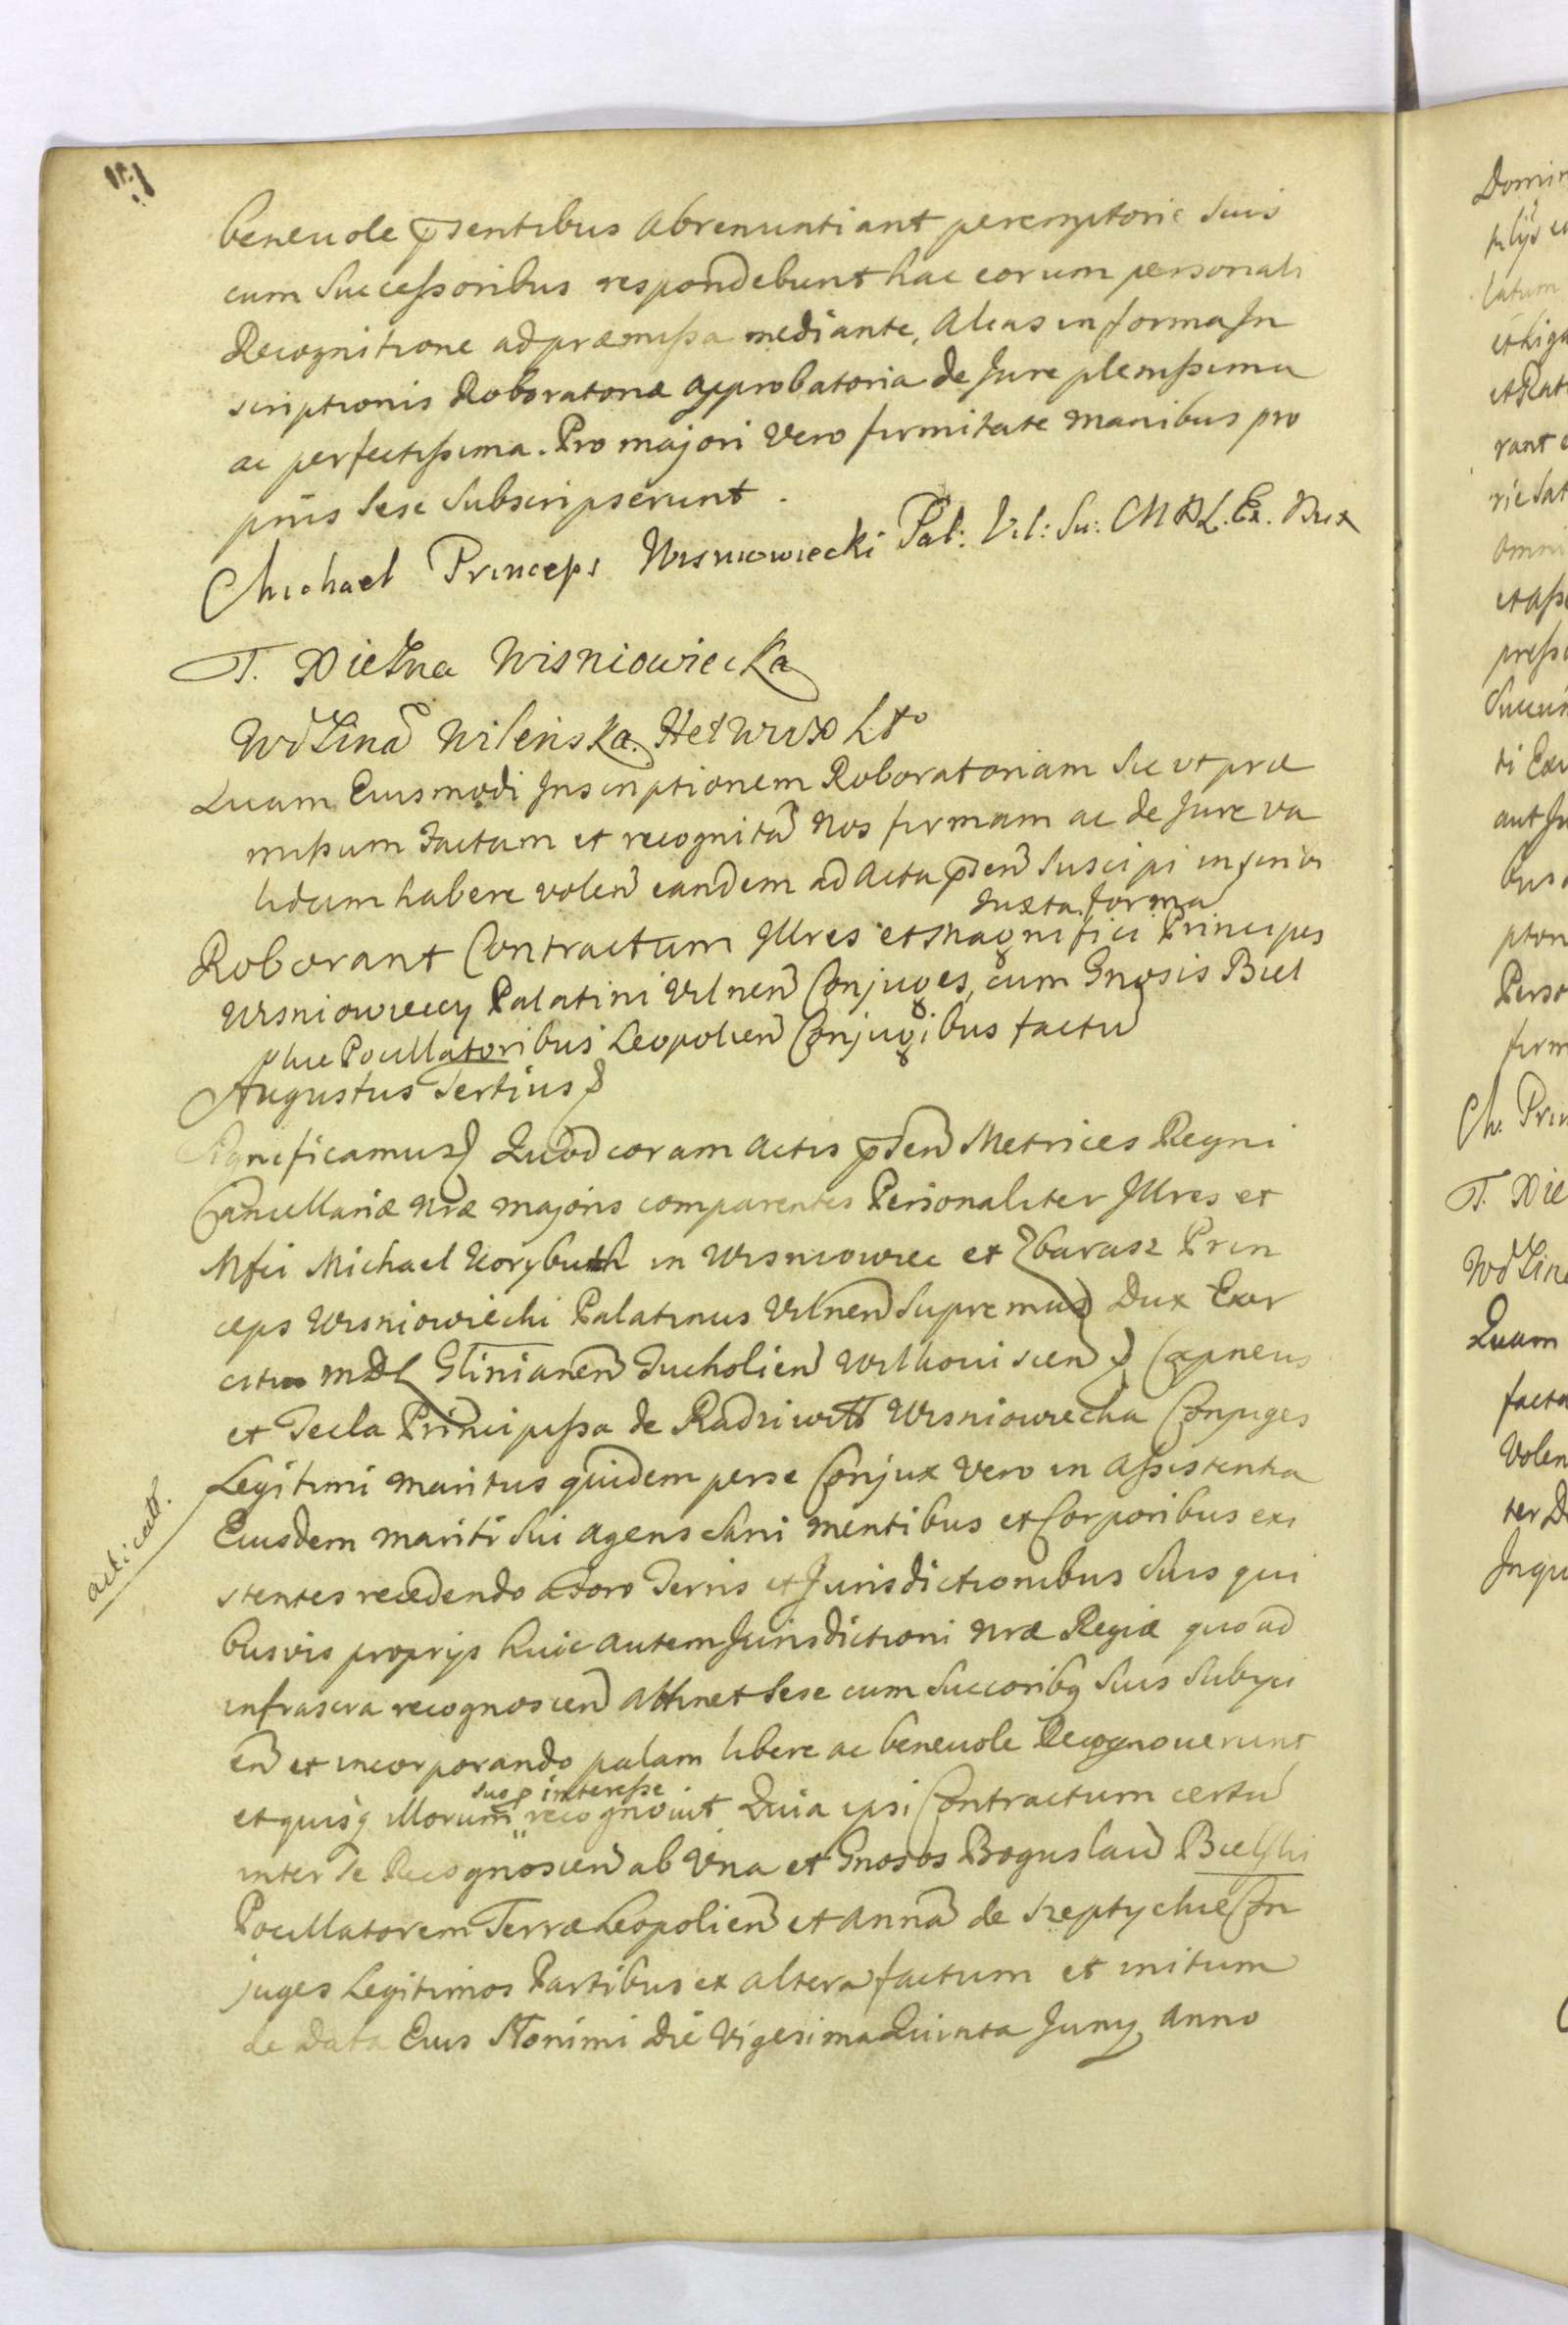 beneuole psentibus abrenuntiant peremptorie Suis
cum Successoribus respondebunt hac eorum personali
Recognitione ad præmissa mediante, alias in forma In
scriptionis Roboratoriæ approbatoria de Jure plenissima
ac perfectissima. Pro majori vero firmitate manibus pro
priis sese subscripserunt.
Michael Princeps Wisniowiecki Pal: Vil: Su: M D L. Ex. Dux
T. XieZna Wisniowiecka
WdZina Wilenska. Het W WX Lto
Quam Eiusmodi Inscriptionem Roboratoriam Sic ut præ
missum factam et recognitã Nos firmam ac de Jure va
lidam habere volen eandem ad Acta psen Suscipi in
Juxta forma
Roborant Contractum Illres et Magnifici Principes
Wisniowieccy Palatini Vilnen Conjuges, cum Gnosis Biel
skie Pocillatoribus Leopolien Conjugibus factũ
Augustus Tertius
Significamus Quod coram Actis psen Metrices Regni
Cancellariæ Nræ majoris comparentes Personaliter Illres et
Mfci Michael Korybuth in Wisniowiec et Zbarasz Prin
ceps Wisniowiecki Palatinus Vilnen Supremus Dux Exer
cituo MDL Glinianen Tucholien Wilkoviscien Capneus
et Tecla Principissa de Radziwiłł Wisniowiecka Conjuges
Legitimi maritus quidem per se Conjux vero in assistentia
acticatt.
Eiusdem mariti sui agens sani mentibus et Corporibus exi
stentes recedendo a foro Terris et Jurisdictionibus Suis qui
busvis proprijs huic autem Jurisdictioni Nræ Regiæ quo ad
infrascra recognoscen attinet sese cum Succoribq Suis Subyci
en et incorporando palam libere ac beneuole Recognouerunt
suo p interesse
et quisq illorum recognouit Quia ipsi Contractum certũ
inter Se Recognoscen ab Una et Gnosos Boguslaũ Bielski
Pocillatorem Terræ Leopolien et Annã de Szeptyckie Con
juges Legitimos Partibus ex altera factum et initum
de Data Eius Słonimi Die Vigesima Quinta Juny Anno